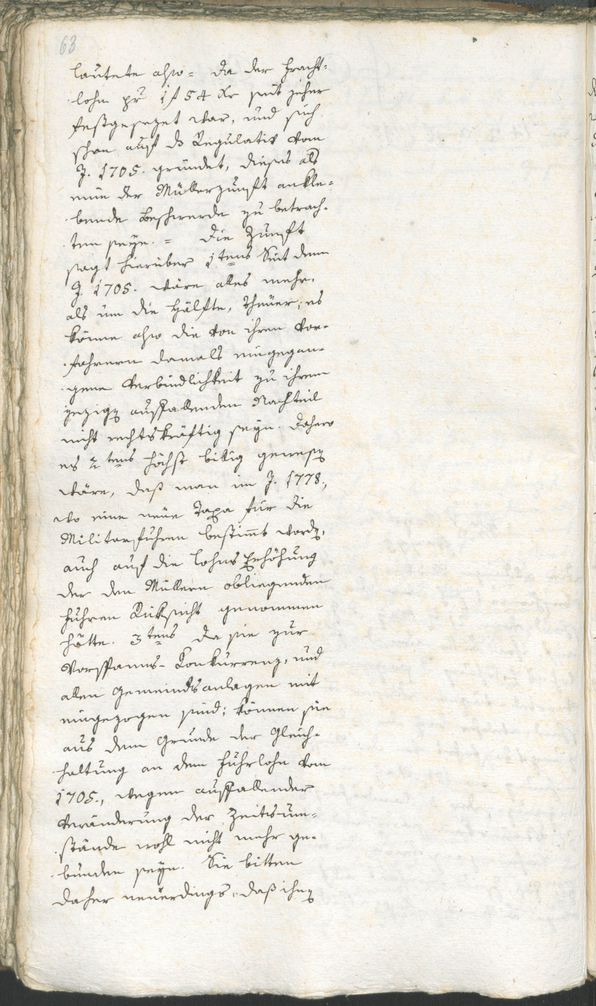 68
lautete also = da der Fracht-
lohn pr 1 f 54 Xr seit jeher
festgesezet war, und sich
schon auf ds Regulativ vom
J. 1705. gründet, dieses als
eine der Müllerzunft ankle-
bende Beschwerde zu betrach-
ten seye. = Die Zunft
sagt hierüber 1tens Seit dem
J. 1705. wäre alles mehr,
als um die Hälfte, theuer; es
könne also die von ihren Vor-
fahrern damals eingegan-
gene Verbindlichkeit zu ihrem
jezigen auffallenden Nachteil
nicht rechtskräftig seyn. Dahero
es 2tens höchst billig gewesen
wäre, daß man im J. 1778,
wo eine neüe Taxa für die
Militarfuhren bestimmt worden,
auch auf die Lohns Erhöhung
der den Müllern obliegenden
Fuhren Rüksicht genommen
hätte. 3tens da sie zur
Vorspanns-Konkurrenz, und
allen Gemeindsanlagen mit
eingezogen sind; können sie
aus dem Grunde der Gleich-
haltung an dem Fuhrlohn vom
1705., wegen auffallender
Veränderung der Zeitsum-
stände wohl nicht mehr ge-
bunden seyn. Sie bitten
daher neüerdings, daß ihnen